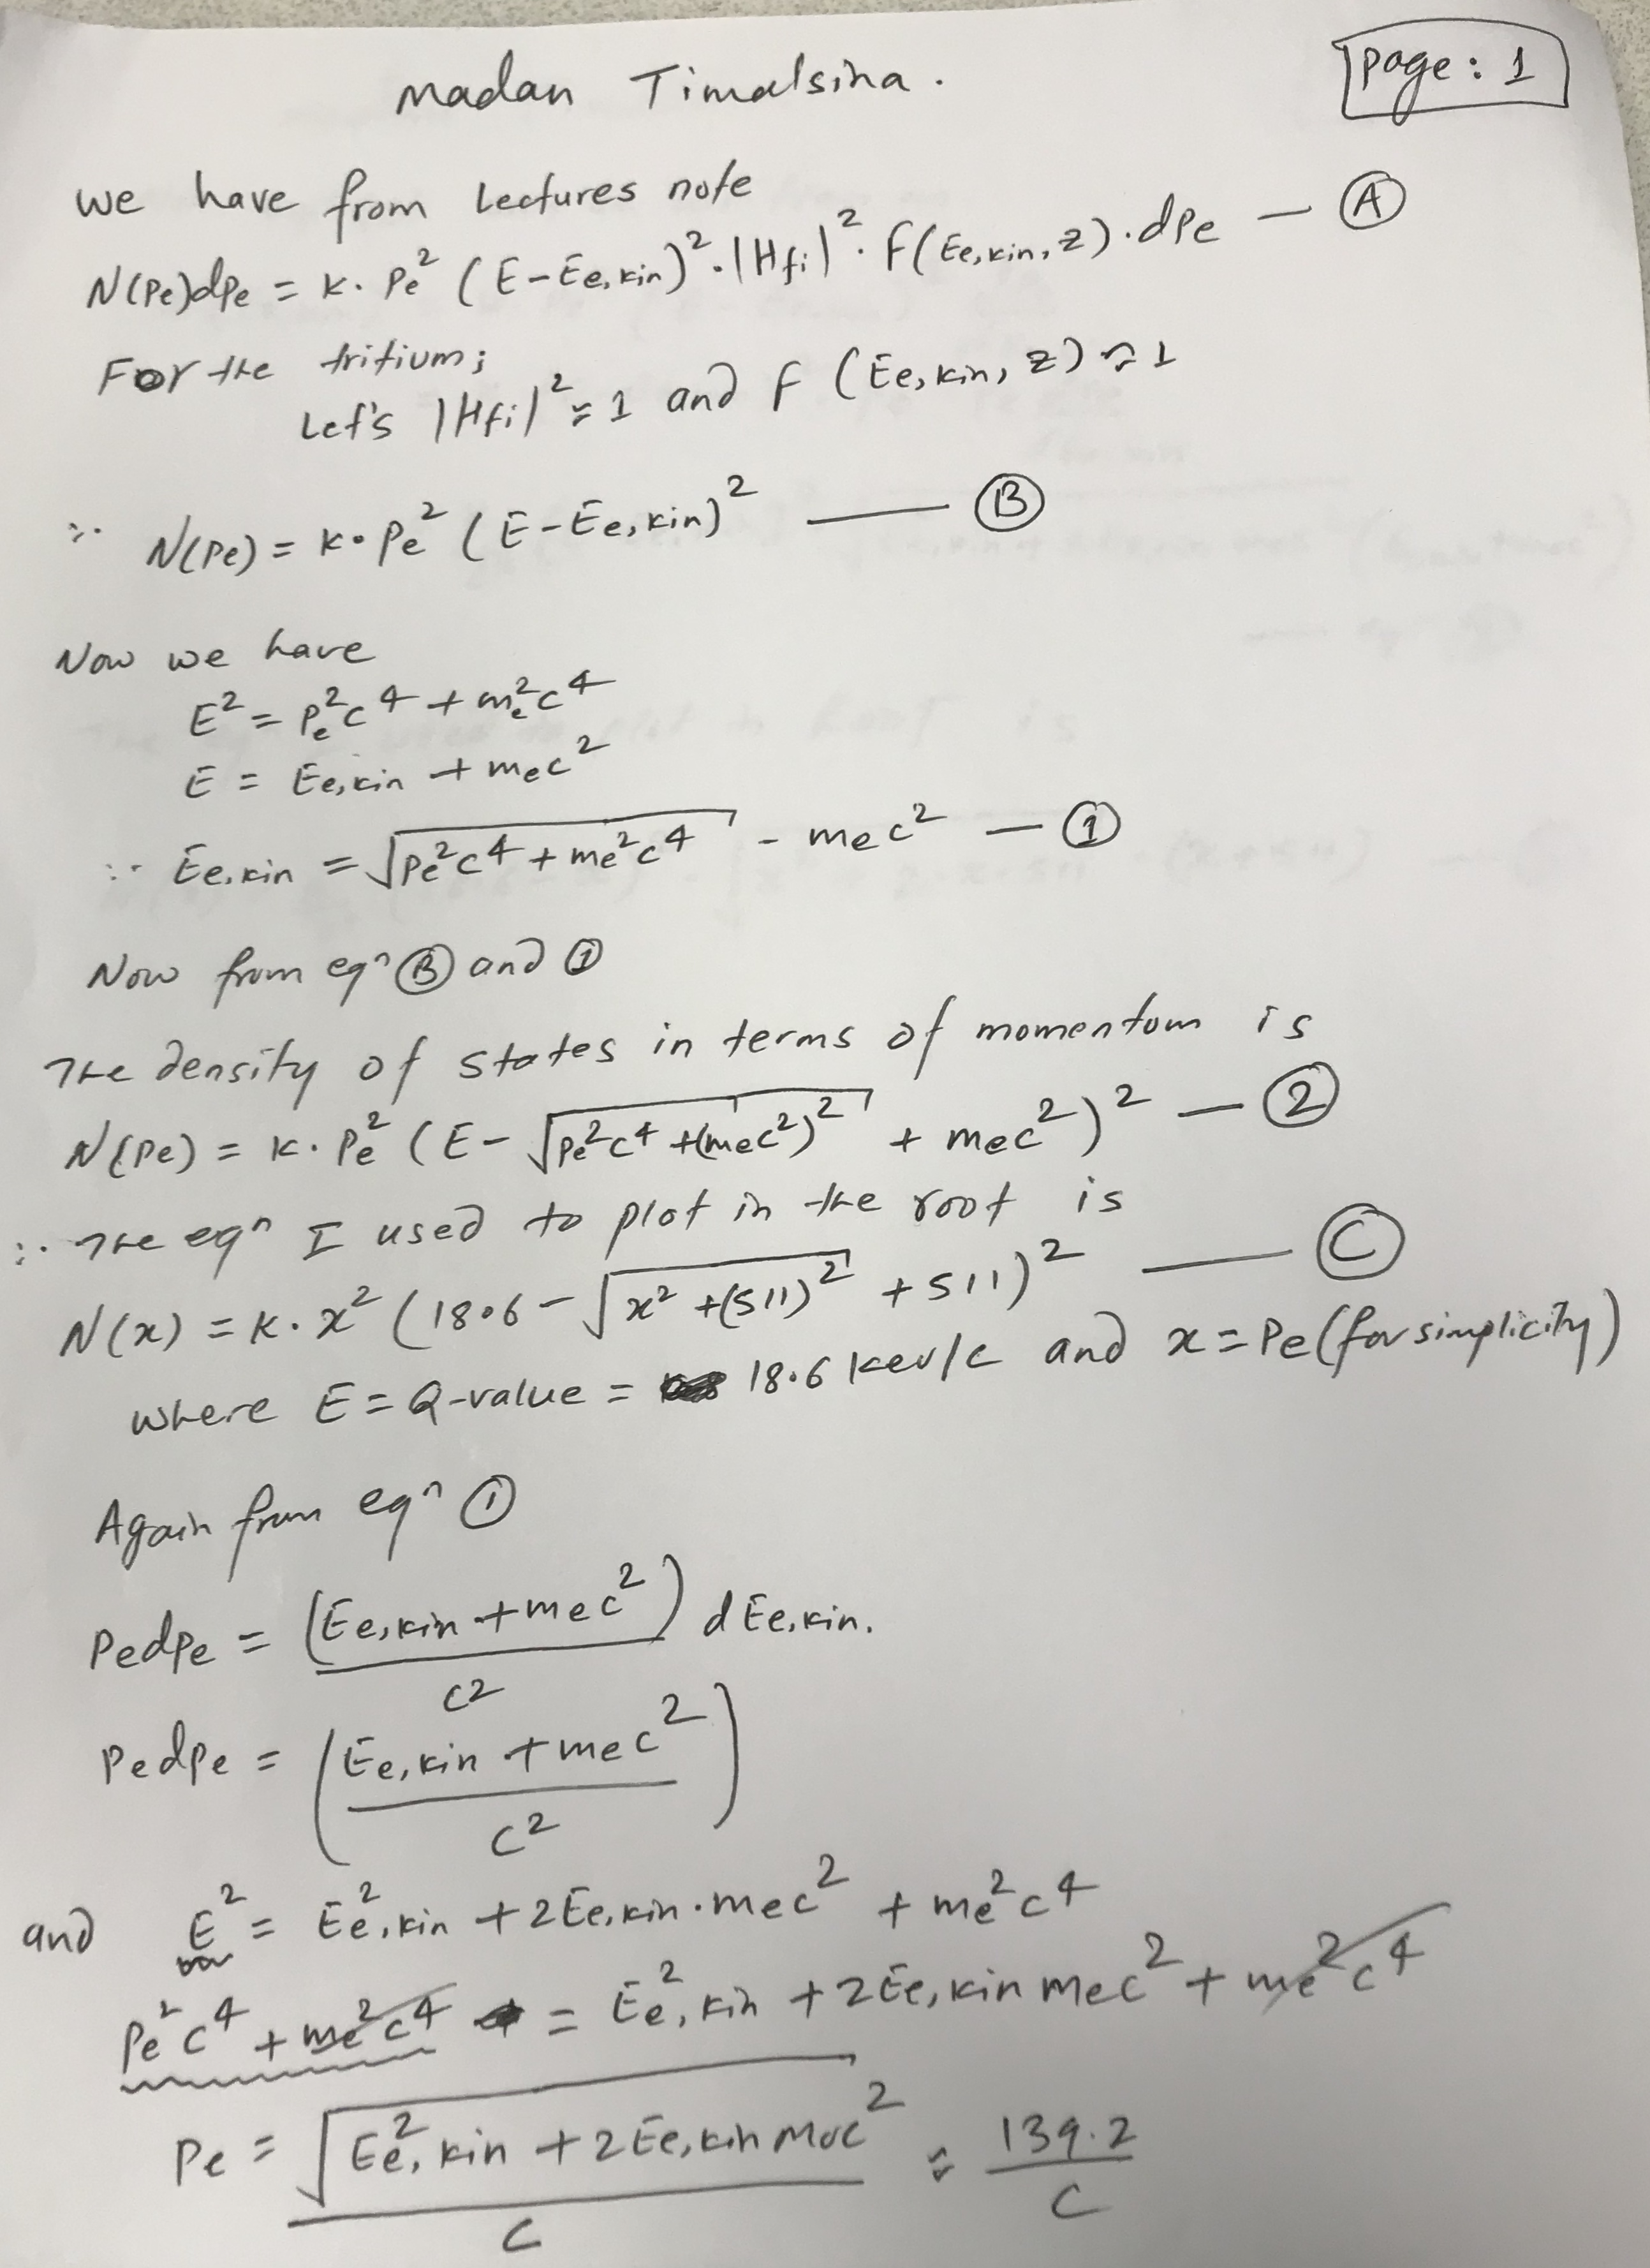 Madan Timalsina.
page: 1
we have from Lectures note
N(Pe)dPe = K. Pe² (E-Ee,kin)².|Hfi|². F(Ee,kin,z).dPe — Ⓐ
For the tritium;
Let's |Hfi|² ≈ 1 and F (Ee,kin, z) ≈ 1
∴ N(Pe) = K. Pe² (E-Ee,kin)² — Ⓑ
Now we have
E² = Pe²c⁴ + me²c⁴
E = Ee,kin + mec²
∴ Ee,kin = √(Pe²c⁴ + me²c⁴) - mec² — ①
Now from eqⁿ Ⓑ and ①
The density of states in terms of momentum is
N(Pe) = K. Pe² (E - √(Pe²c⁴ + (mec²)²) + mec²)² — ②
∴ The eqⁿ I used to plot in the root is
N(x) = K. x² (18.6 - √(x² + (511)²) + 511)² — Ⓒ
where E = Q-value = 18.6 kev/c and x = Pe (for simplicity)
Again from eqⁿ ①
Pedpe = (Ee,kin + mec²)/c² dEe,kin.
Pedpe = (Ee,kin + mec²/c²)
and E² = Ee²,kin + 2Ee,kin.mec² + me²c⁴
Pe²c⁴ + me²c⁴ = Ee²,kin + 2Ee,kin mec² + me²c⁴
Pe = √(Ee²,kin + 2Ee,kin moc²)/c ≈ 139.2/c